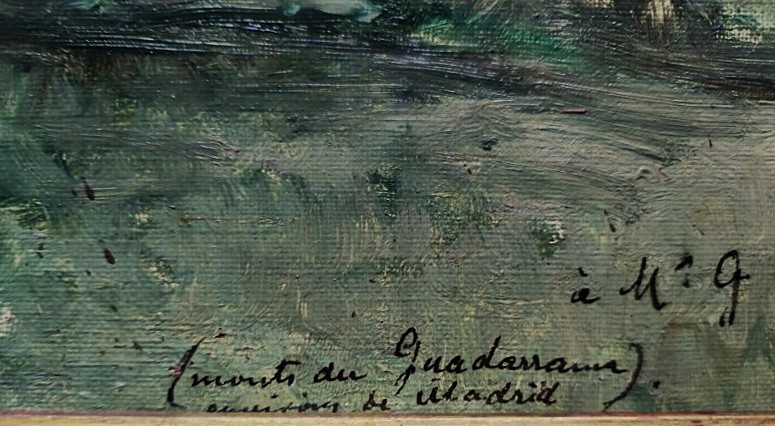 à Mr G
(monts du Guadarrama).
environs de Madrid